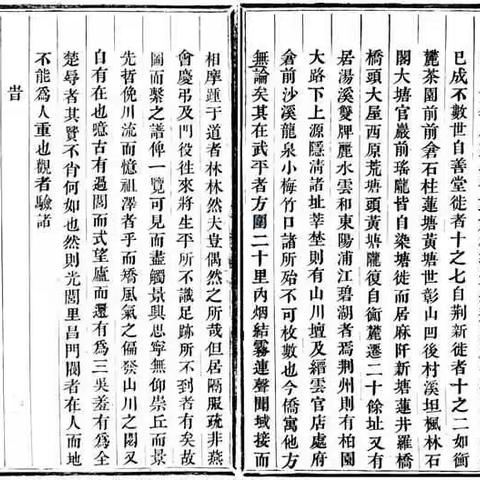 已成不數世自善堂徙者十之七自荆新徙者十之二如衡
麓茶園前前倉石柱蓮塘黃塘世彰山凹後村溪坦楓林石
閣大塘官巖前瑤隴皆自染塘徙而居麻阡新塘蓮井羅橋
橋頭大屋西原荒塘頭黃塘隴復自衡麓遷二十餘址又有
居湯溪雙牌麗水雲和東陽浦江碧湖者焉荆州則有柏園
大路下上源隱清諸址莘埜則有山川壇及縉雲官店處府
倉前沙溪龍泉小梅竹口諸所殆不可枚數也今僑寓他方
無論矣其在武平者方圍二十里內烟結霧連聲聞域接而
相摩踵于道者林林然夫豈偶然之所哉但居隔服疏非燕
會慶弔及門役徃來將生平所不識足跡所不到者有矣故
圖而繫之譜俾一覽可見而盡觸景興思寧無仰崇丘而景
先哲俛川流而憶祖澤者乎而矯風氣之偏發山川之閟又
自有在也噫古有過閭而式望廬而還有為三吳羞有為全
楚尋者其賢不肖何如也然則光閭里昌門閥者在人而地
不能為人重也觀者驗諸
昔